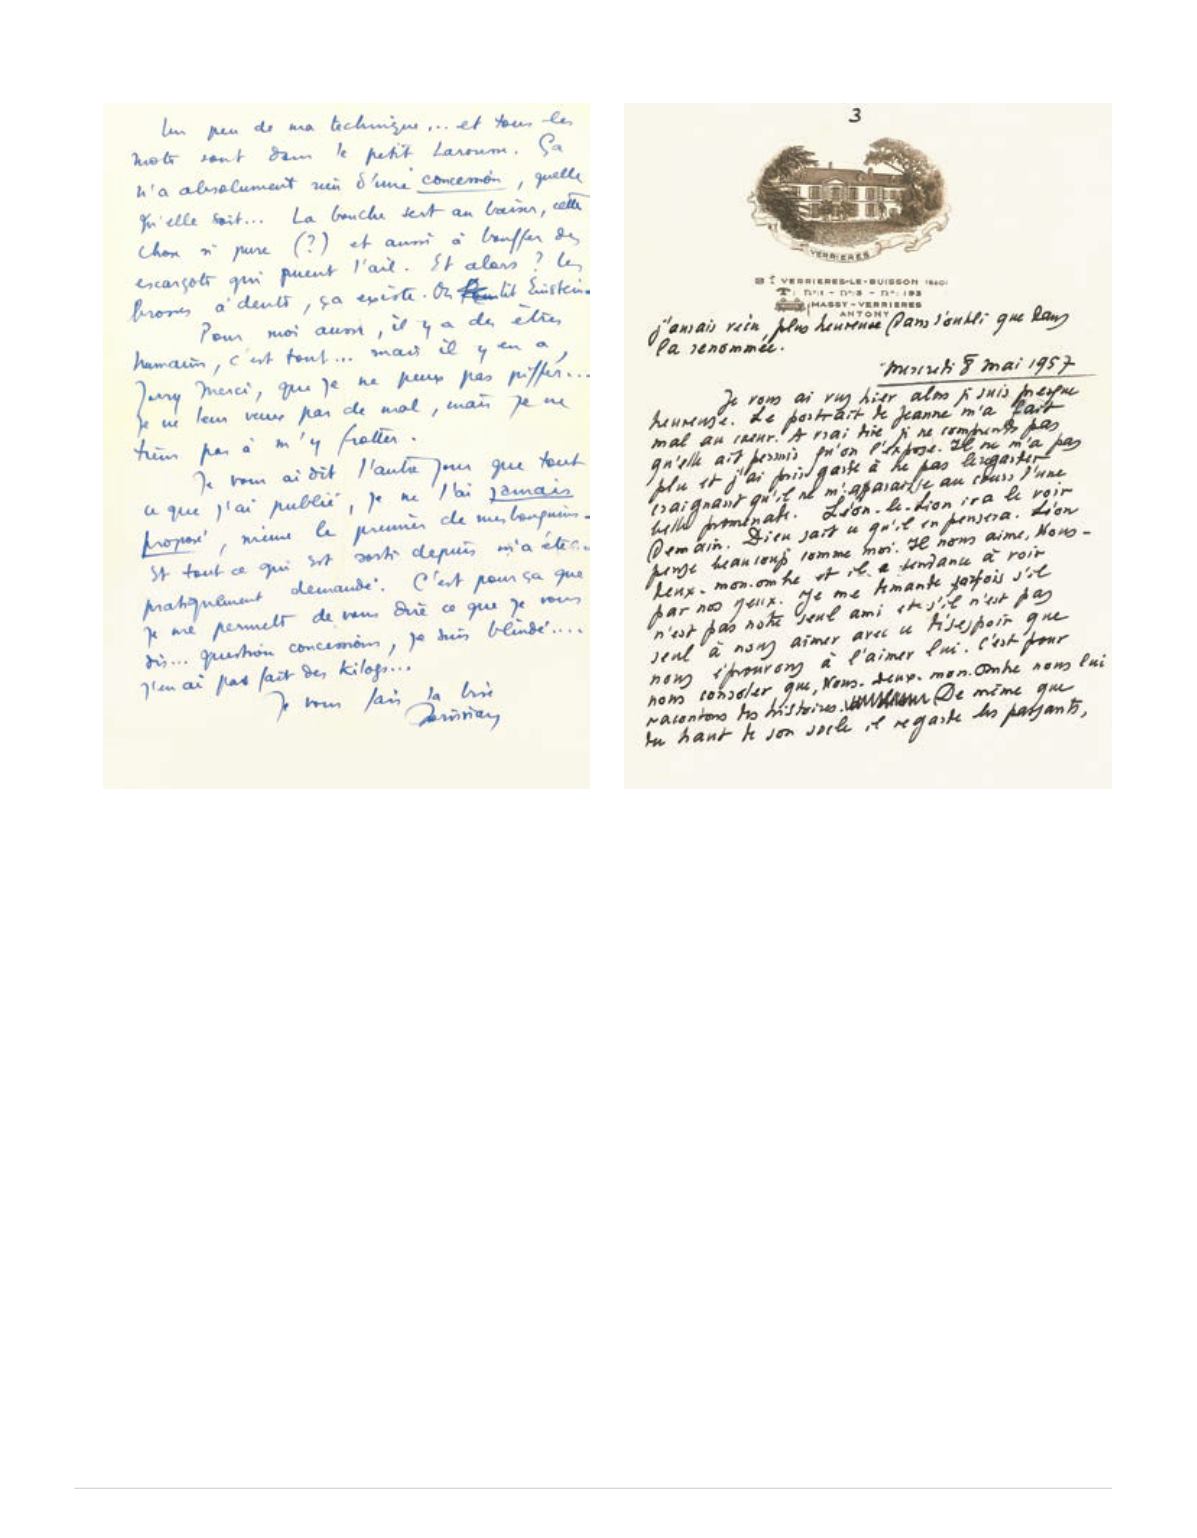 Un peu de ma technique... et tous les
mots sont dans le petit Larousse. Ça
n'a absolument rien d'une concession, quelle
qu'elle soit... La bouche sert au baiser, cette
chose si pure (?) et aussi à bouffer des
escargots qui puent l'ail. Et alors ? Les
brosses à dents, ça existe. On lit Einstein
Pour moi aussi, il y a des êtres
humains, c'est tout... mais il y en a,
Merci, que je ne peux pas piffer...
Je ne leur veux pas de mal, mais je ne
tiens pas à m'y frotter.
Je vous ai dit l'autre jour que tout
ce que j'ai publié, je ne l'ai jamais
proposé, même le premier de mes bouquins.
Et tout ce qui est sorti depuis m'a été
pratiquement demandé. C'est pour ça que
je me permets de vous dire ce que je vous
dis... question concessions, je suis blindé....
J'en ai pas fait des kilogs...
Je vous fais la bise
3
VERRIERES
VERRIERES-LE-BUISSON
MASSY-VERRIERES
ANTONY
j'aurais été plus heureuse dans l'oubli que dans
la renommée.
Mercredi 8 mai 1957
Je vous ai vus hier alors je suis presque
heureuse. Le portrait de Jeanne m'a fait
mal au cœur. A vrai dire je ne comprends pas
qu'elle ait permis qu'on l'expose. Il ne m'a pas
plu et j'ai pris garde à ne pas le regarder
craignant qu'il ne m'apparaisse au cours d'une
belle promenade. Léon-le-Lion ira le voir
demain. Dieu sait ce qu'il en pensera. Léon
pense beaucoup comme moi. Il nous aime, Nous-
deux-mon-ombre et il a tendance à voir
par nos yeux. Je me demande parfois s'il
n'est pas notre seul ami et s'il n'est pas
seul à nous aimer avec ce désespoir que
nous éprouvons à l'aimer lui. C'est pour
nous consoler que, Nous-deux-mon-Ombre nous lui
racontons des histoires. De même que
du haut de son socle il regarde les passants,